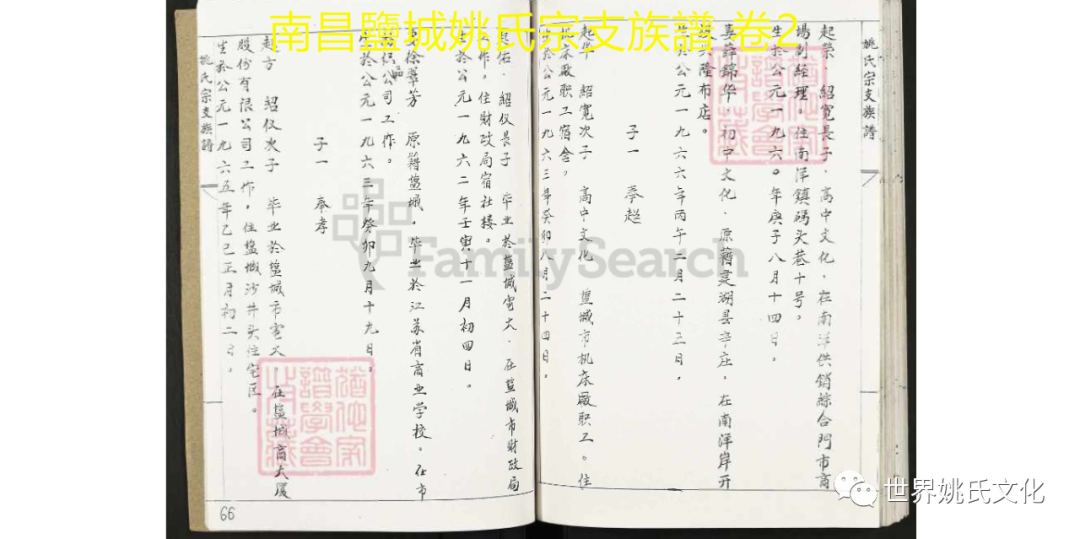 南昌鹽城姚氏宗支族譜 卷2
姚氏宗支族譜
起荣 紹寬長子.高中文化.在南洋供銷綜合門市商
場副经理.住南洋鎮碼头巷十号。
生於公元一九六〇年庚子八月十四日。
薛錦华 初中文化.原籍建湖县辛庄.在南洋岸开
兴隆布店。
公元一九六六年丙午二月二十三日.
子一 奉超
起华 紹寬次子 高中文化 盐城市机床厰职工。住
机床厰职工宿舍.
生於公元一九六三年癸卯八月二十四日.
紹仪長子 毕业於盐城电大.在盐城市财政局
工作.住财政局宿社楼。
公元一九六二年壬寅十一月初四日.
徐翠芳 原籍盐城.毕业於江苏省商业学校.在市
公司工作。
於公元一九六三年癸卯九月十九日.
子一 奉孝
起方 紹仪次子 毕业於盐城市电大 在盐城商大厦
股份有限公司工作.住盐城沙井头住宅区。
生於公元一九六五年乙巳正月初二日.
姚氏宗支族譜
66
FamilySearch
世界姚氏文化